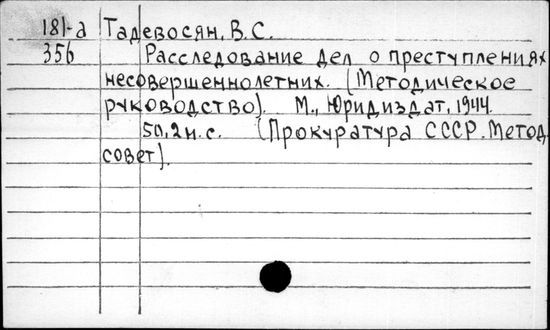 181-а Тадевосян, В.С.
356 Расследование дел о преступлениях
несовершеннолетних. (Методическое
руководство). М., Юридиздат, 1944.
50,2н.с. (Прокуратура СССР. Метод.
совет).